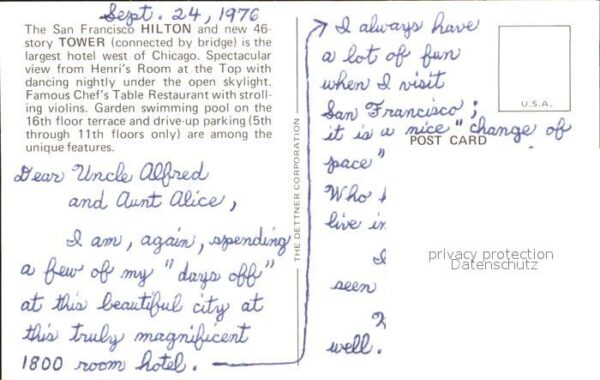 Sept. 24, 1976
The San Francisco HILTON and new 46-
story TOWER (connected by bridge) is the
largest hotel west of Chicago. Spectacular
view from Henri's Room at the Top with
dancing nightly under the open skylight.
Famous Chef's Table Restaurant with stroll-
ing violins. Garden swimming pool on the
16th floor terrace and drive-up parking (5th
through 11th floors only) are among the
unique features.
Dear Uncle Alfred
and Aunt Alice,
I am, again, spending
a few of my "days off"
at this beautiful city at
this truly magnificent
1800 room hotel.
THE DETTNER CORPORATION
I always have
a lot of fun
when I visit
San Francisco;
it is a nice "change of
pace"
Who
live in
seen
well.
U.S.A.
POST CARD
privacy protection
Datenschutz